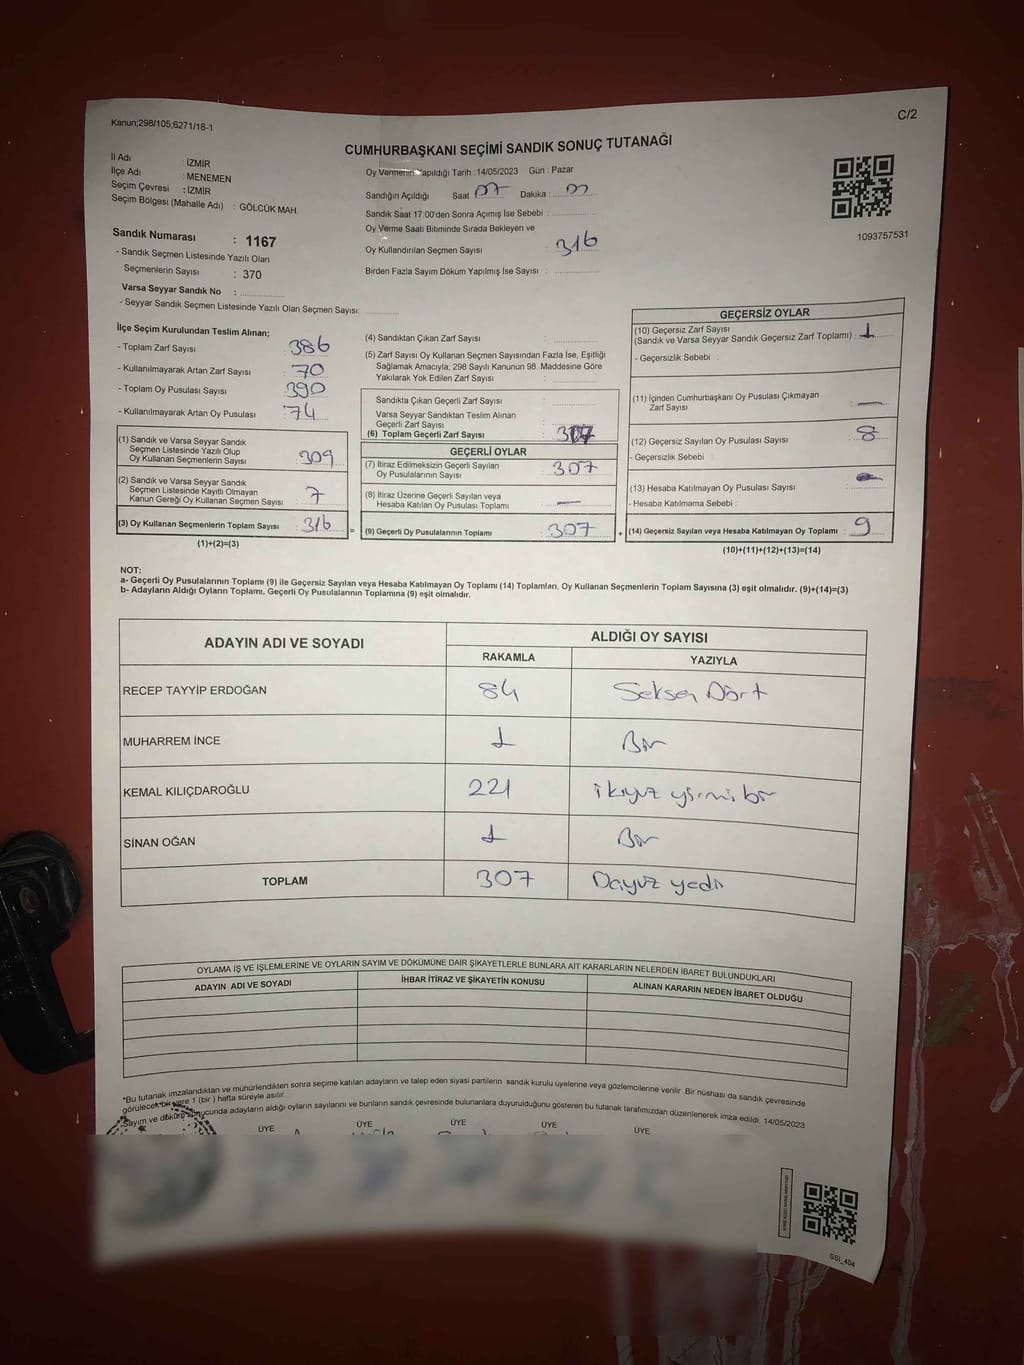 Kanun;298/105;6271/18-1
C/2
CUMHURBAŞKANI SEÇİMİ SANDIK SONUÇ TUTANAĞI
İl Adı : İZMİR
İlçe Adı : MENEMEN
Seçim Çevresi : İZMİR
Seçim Bölgesi (Mahalle Adı) : GÖLCÜK MAH.
Sandık Numarası : 1167
- Sandık Seçmen Listesinde Yazılı Olan
Seçmenlerin Sayısı : 370
Varsa Seyyar Sandık No :
- Seyyar Sandık Seçmen Listesinde Yazılı Olan Seçmen Sayısı:
Oy Vermenin Yapıldığı Tarih : 14/05/2023 Gün : Pazar
Sandığın Açıldığı Saat Dakika :
Sandık Saat 17:00'den Sonra Açımış İse Sebebi :
Oy Verme Saati Bitiminde Sırada Bekleyen ve
Oy Kullandırılan Seçmen Sayısı : 316
Birden Fazla Sayım Döküm Yapılmış İse Sayısı :
1093757531
İlçe Seçim Kurulundan Teslim Alınan;
- Toplam Zarf Sayısı : 386
- Kullanılmayarak Artan Zarf Sayısı : 70
- Toplam Oy Pusulası Sayısı : 390
- Kullanılmayarak Artan Oy Pusulası : 74
(1) Sandık ve Varsa Seyyar Sandık
Seçmen Listesinde Yazılı Olup
Oy Kullanan Seçmenlerin Sayısı : 309
(2) Sandık ve Varsa Seyyar Sandık
Seçmen Listesinde Kayıtlı Olmayan
Kanun Gereği Oy Kullanan Seçmen Sayısı : 7
(3) Oy Kullanan Seçmenlerin Toplam Sayısı : 316
(1)+(2)=(3)
(4) Sandıktan Çıkan Zarf Sayısı :
(5) Zarf Sayısı Oy Kullanan Seçmen Sayısından Fazla İse, Eşitliği
Sağlamak Amacıyla; 298 Sayılı Kanunun 98. Maddesine Göre
Yakılarak Yok Edilen Zarf Sayısı :
Sandıkta Çıkan Geçerli Zarf Sayısı :
Varsa Seyyar Sandıktan Teslim Alınan
Geçerli Zarf Sayısı :
(6) Toplam Geçerli Zarf Sayısı : 307
GEÇERLİ OYLAR
(7) İtiraz Edilmeksizin Geçerli Sayılan
Oy Pusulalarının Sayısı : 307
(8) İtiraz Üzerine Geçerli Sayılan veya
Hesaba Katılan Oy Pusulası Toplamı : —
= (9) Geçerli Oy Pusulalarının Toplamı : 307
GEÇERSİZ OYLAR
(10) Geçersiz Zarf Sayısı
(Sandık ve Varsa Seyyar Sandık Geçersiz Zarf Toplamı) : 1
- Geçersizlik Sebebi :
(11) İçinden Cumhurbaşkanı Oy Pusulası Çıkmayan
Zarf Sayısı : —
(12) Geçersiz Sayılan Oy Pusulası Sayısı : 8
- Geçersizlik Sebebi :
(13) Hesaba Katılmayan Oy Pusulası Sayısı :
- Hesaba Katılmama Sebebi :
+ (14) Geçersiz Sayılan veya Hesaba Katılmayan Oy Toplamı : 9
(10)+(11)+(12)+(13)=(14)
NOT:
a- Geçerli Oy Pusulalarının Toplamı (9) ile Geçersiz Sayılan veya Hesaba Katılmayan Oy Toplamı (14) Toplamları, Oy Kullanan Seçmenlerin Toplam Sayısına (3) eşit olmalıdır. (9)+(14)=(3)
b- Adayların Aldığı Oyların Toplamı, Geçerli Oy Pusulalarının Toplamına (9) eşit olmalıdır.
ADAYIN ADI VE SOYADI ALDIĞI OY SAYISI
RAKAMLA YAZIYLA
RECEP TAYYİP ERDOĞAN 84 Seksen Dört
MUHARREM İNCE 1 Bir
KEMAL KILIÇDAROĞLU 221 ikiyüz yirmi bir
SİNAN OĞAN 1 Bir
TOPLAM 307 yedi
OYLAMA İŞ VE İŞLEMLERİNE VE OYLARIN SAYIM VE DÖKÜMÜNE DAİR ŞİKAYETLERLE BUNLARA AİT KARARLARIN NELERDEN İBARET BULUNDUKLARI
ADAYIN ADI VE SOYADI İHBAR İTİRAZ VE ŞİKAYETİN KONUSU ALINAN KARARIN NEDEN İBARET OLDUĞU
*Bu tutanak imzalandıktan ve mühürlendikten sonra seçime katılan adayların ve talep eden siyasi partilerin sandık kurulu üyelerine veya gözlemcilerine verilir. Bir nüshası da sandık çevresinde
görülecek bir yere 1 (bir ) hafta süreyle asılır.
Sayım ve döküm sonucunda adayların aldığı oyların sayılarını ve bunların sandık çevresinde bulunanlara duyurulduğunu gösteren bu tutanak tarafımızdan düzenlenerek imza edildi. 14/05/2023
ÜYE ÜYE ÜYE ÜYE ÜYE
SSI_404